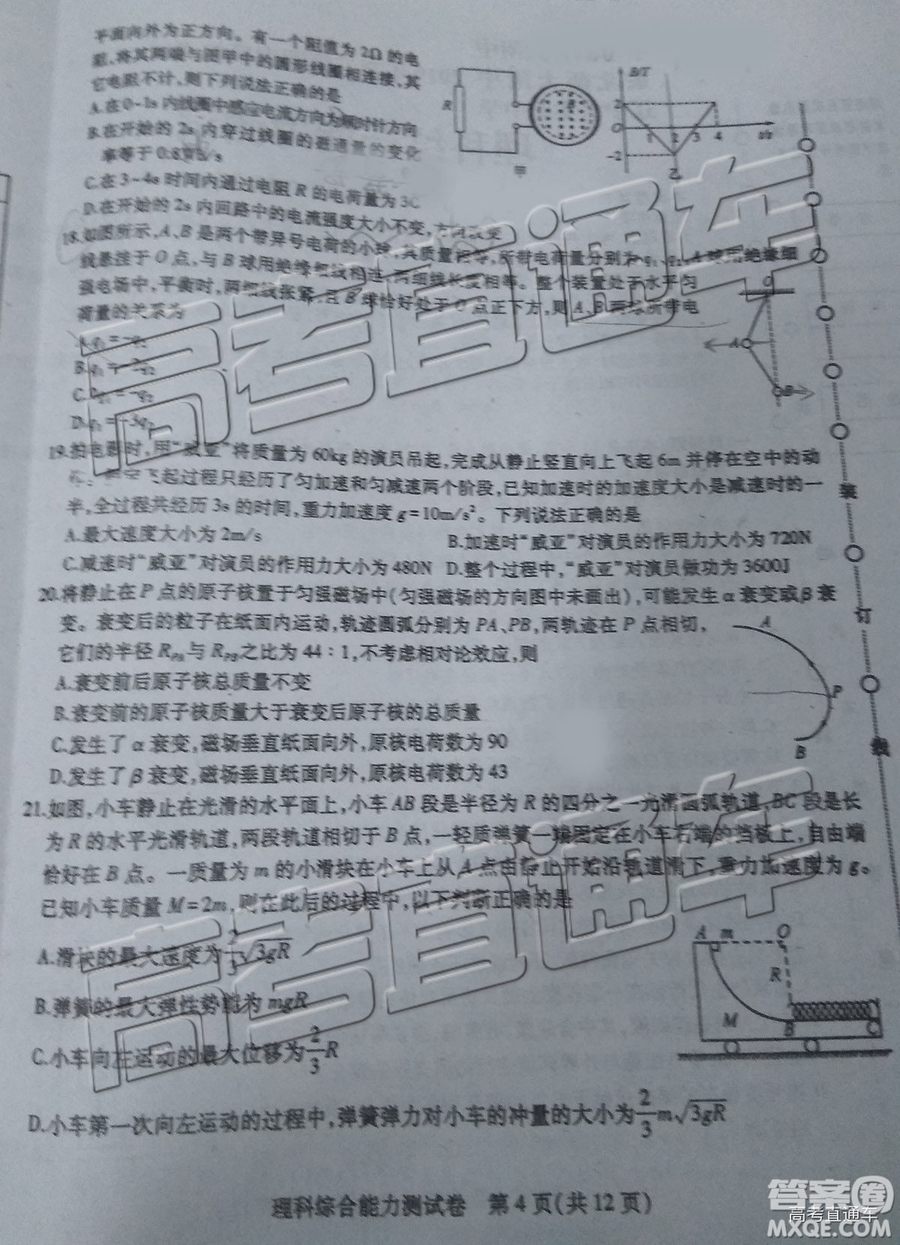 平面向外为正方向。有一个阻值为2Ω的电
阻,将其两端与图甲中的圆形线圈相连接,其
它电阻不计,则下列说法正确的是
A.在0~1s内线圈中感应电流方向为顺时针方向
B.在开始的2s内穿过线圈的磁通量的变化
率等于0.8πWb/s
C.在3~4s时间内通过电阻R的电荷量为3C
D.在开始的2s内回路中的电流强度大小不变,方向改变
R
B
甲
B/T
2
O
-2
1 2 3 4
t/s
乙
18.如图所示,A、B是两个带异号电荷的小球,其质量相等,所带电荷量分别为q₁、q₂,A球用绝缘细
线悬挂于O点,与B球用绝缘细线相连,两细线长度相等。整个装置处于水平匀
强电场中,平衡时,两细线张紧,且B球恰好处于O点正下方,则A、B两球所带电
荷量的关系为
A.q₁=-q₂
B.q₁=-2q₂
C.2q₁=-q₂
D.q₁=-3q₂
O
A
B
19.拍电影时,用“威亚”将质量为60kg的演员吊起,完成从静止竖直向上飞起6m并停在空中的动
飞起过程只经历了匀加速和匀减速两个阶段,已知加速时的加速度大小是减速时的一
半,全过程共经历3s的时间,重力加速度g=10m/s²。下列说法正确的是
A.最大速度大小为2m/s
B.加速时“威亚”对演员的作用力大小为720N
C.减速时“威亚”对演员的作用力大小为480N
D.整个过程中,“威亚”对演员做功为3600J
20.将静止在P点的原子核置于匀强磁场中(匀强磁场的方向图中未画出),可能发生α衰变或β衰
变。衰变后的粒子在纸面内运动,轨迹圆弧分别为PA、PB,两轨迹在P点相切,
它们的半径R_PA与R_PB之比为44:1,不考虑相对论效应,则
A.衰变前后原子核总质量不变
B.衰变前的原子核质量大于衰变后原子核的总质量
C.发生了α衰变,磁场垂直纸面向外,原核电荷数为90
D.发生了β衰变,磁场垂直纸面向外,原核电荷数为43
A
P
B
21.如图,小车静止在光滑的水平面上,小车AB段是半径为R的四分之一光滑圆弧轨道,BC段是长
为R的水平光滑轨道,两段轨道相切于B点,一轻质弹簧一端固定在小车右端的挡板上,自由端
恰好在B点。一质量为m的小滑块在小车上从A点由静止开始沿轨道滑下,重力加速度为g。
已知小车质量M=2m,则在此后的过程中,以下判断正确的是
A.滑块的最大速度为2/3√3gR
B.弹簧的最大弹性势能为mgR
C.小车向左运动的最大位移为2/3R
D.小车第一次向左运动的过程中,弹簧弹力对小车的冲量的大小为2/3m√3gR
A m O
R
M
B
C
装
订
线
理科综合能力测试卷 第4页(共12页)
高考直通车
高考直通车
答案圈
高考直通车
MXQE.COM